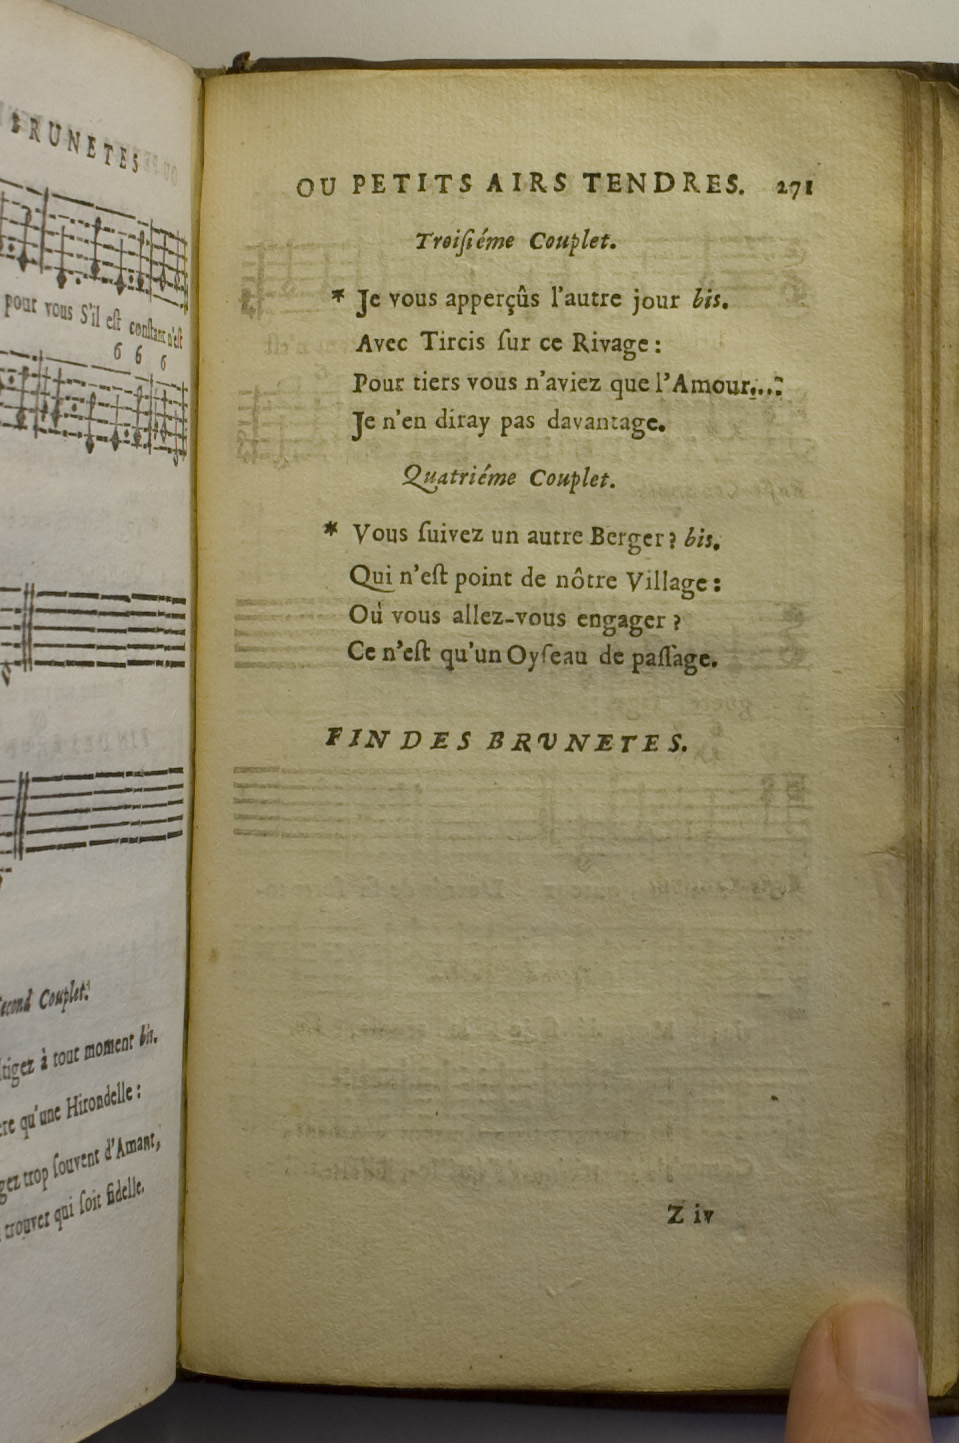 BRUNETES
pour vous S'il eſt constant n'eſt
6 6 6
Second Couplet.
à tout moment bis.
qu'une Hirondelle :
trop ſouvent d'Amant,
trouver qui ſoit fidelle.
OU PETITS AIRS TENDRES. 271
Troiſiéme Couplet.
* Je vous apperçûs l'autre jour bis.
Avec Tircis ſur ce Rivage :
Pour tiers vous n'aviez que l'Amour...?
Je n'en diray pas davantage.
Quatriéme Couplet.
* Vous ſuivez un autre Berger ? bis.
Qui n'eſt point de nôtre Village :
Où vous allez-vous engager ?
Ce n'eſt qu'un Oyſeau de paſſage.
FIN DES BRUNETES.
Z iv